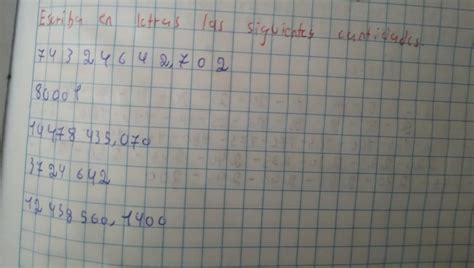 Escriba en letras las siguientes cantidades.
74324642,702
80001
14478435,070
3724642
12438560,1400